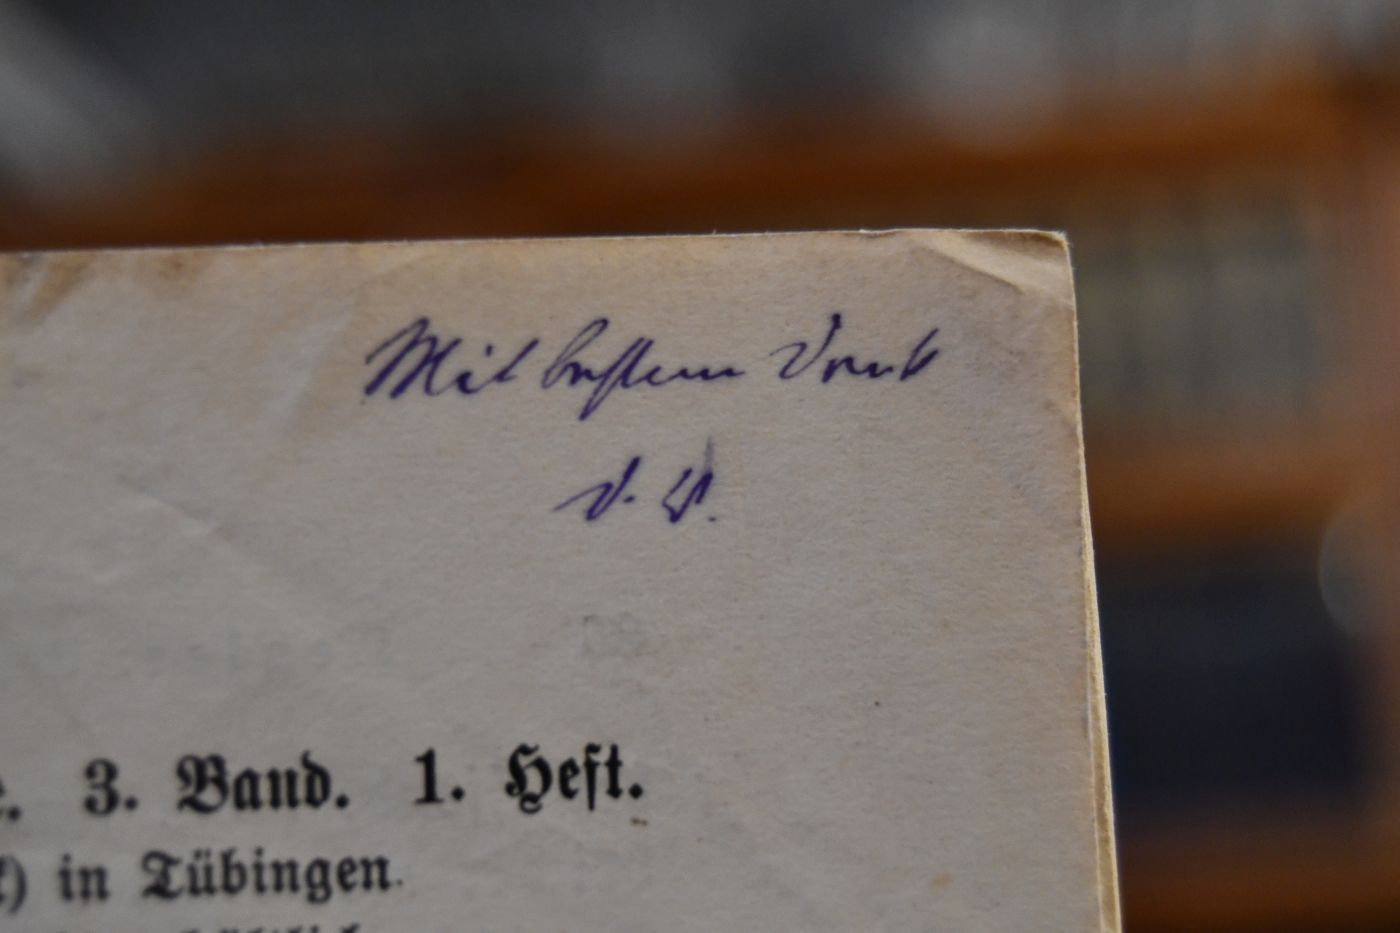 Mit bestem Dank
d. V.
3. Band. 1. Heft.
) in Tübingen.